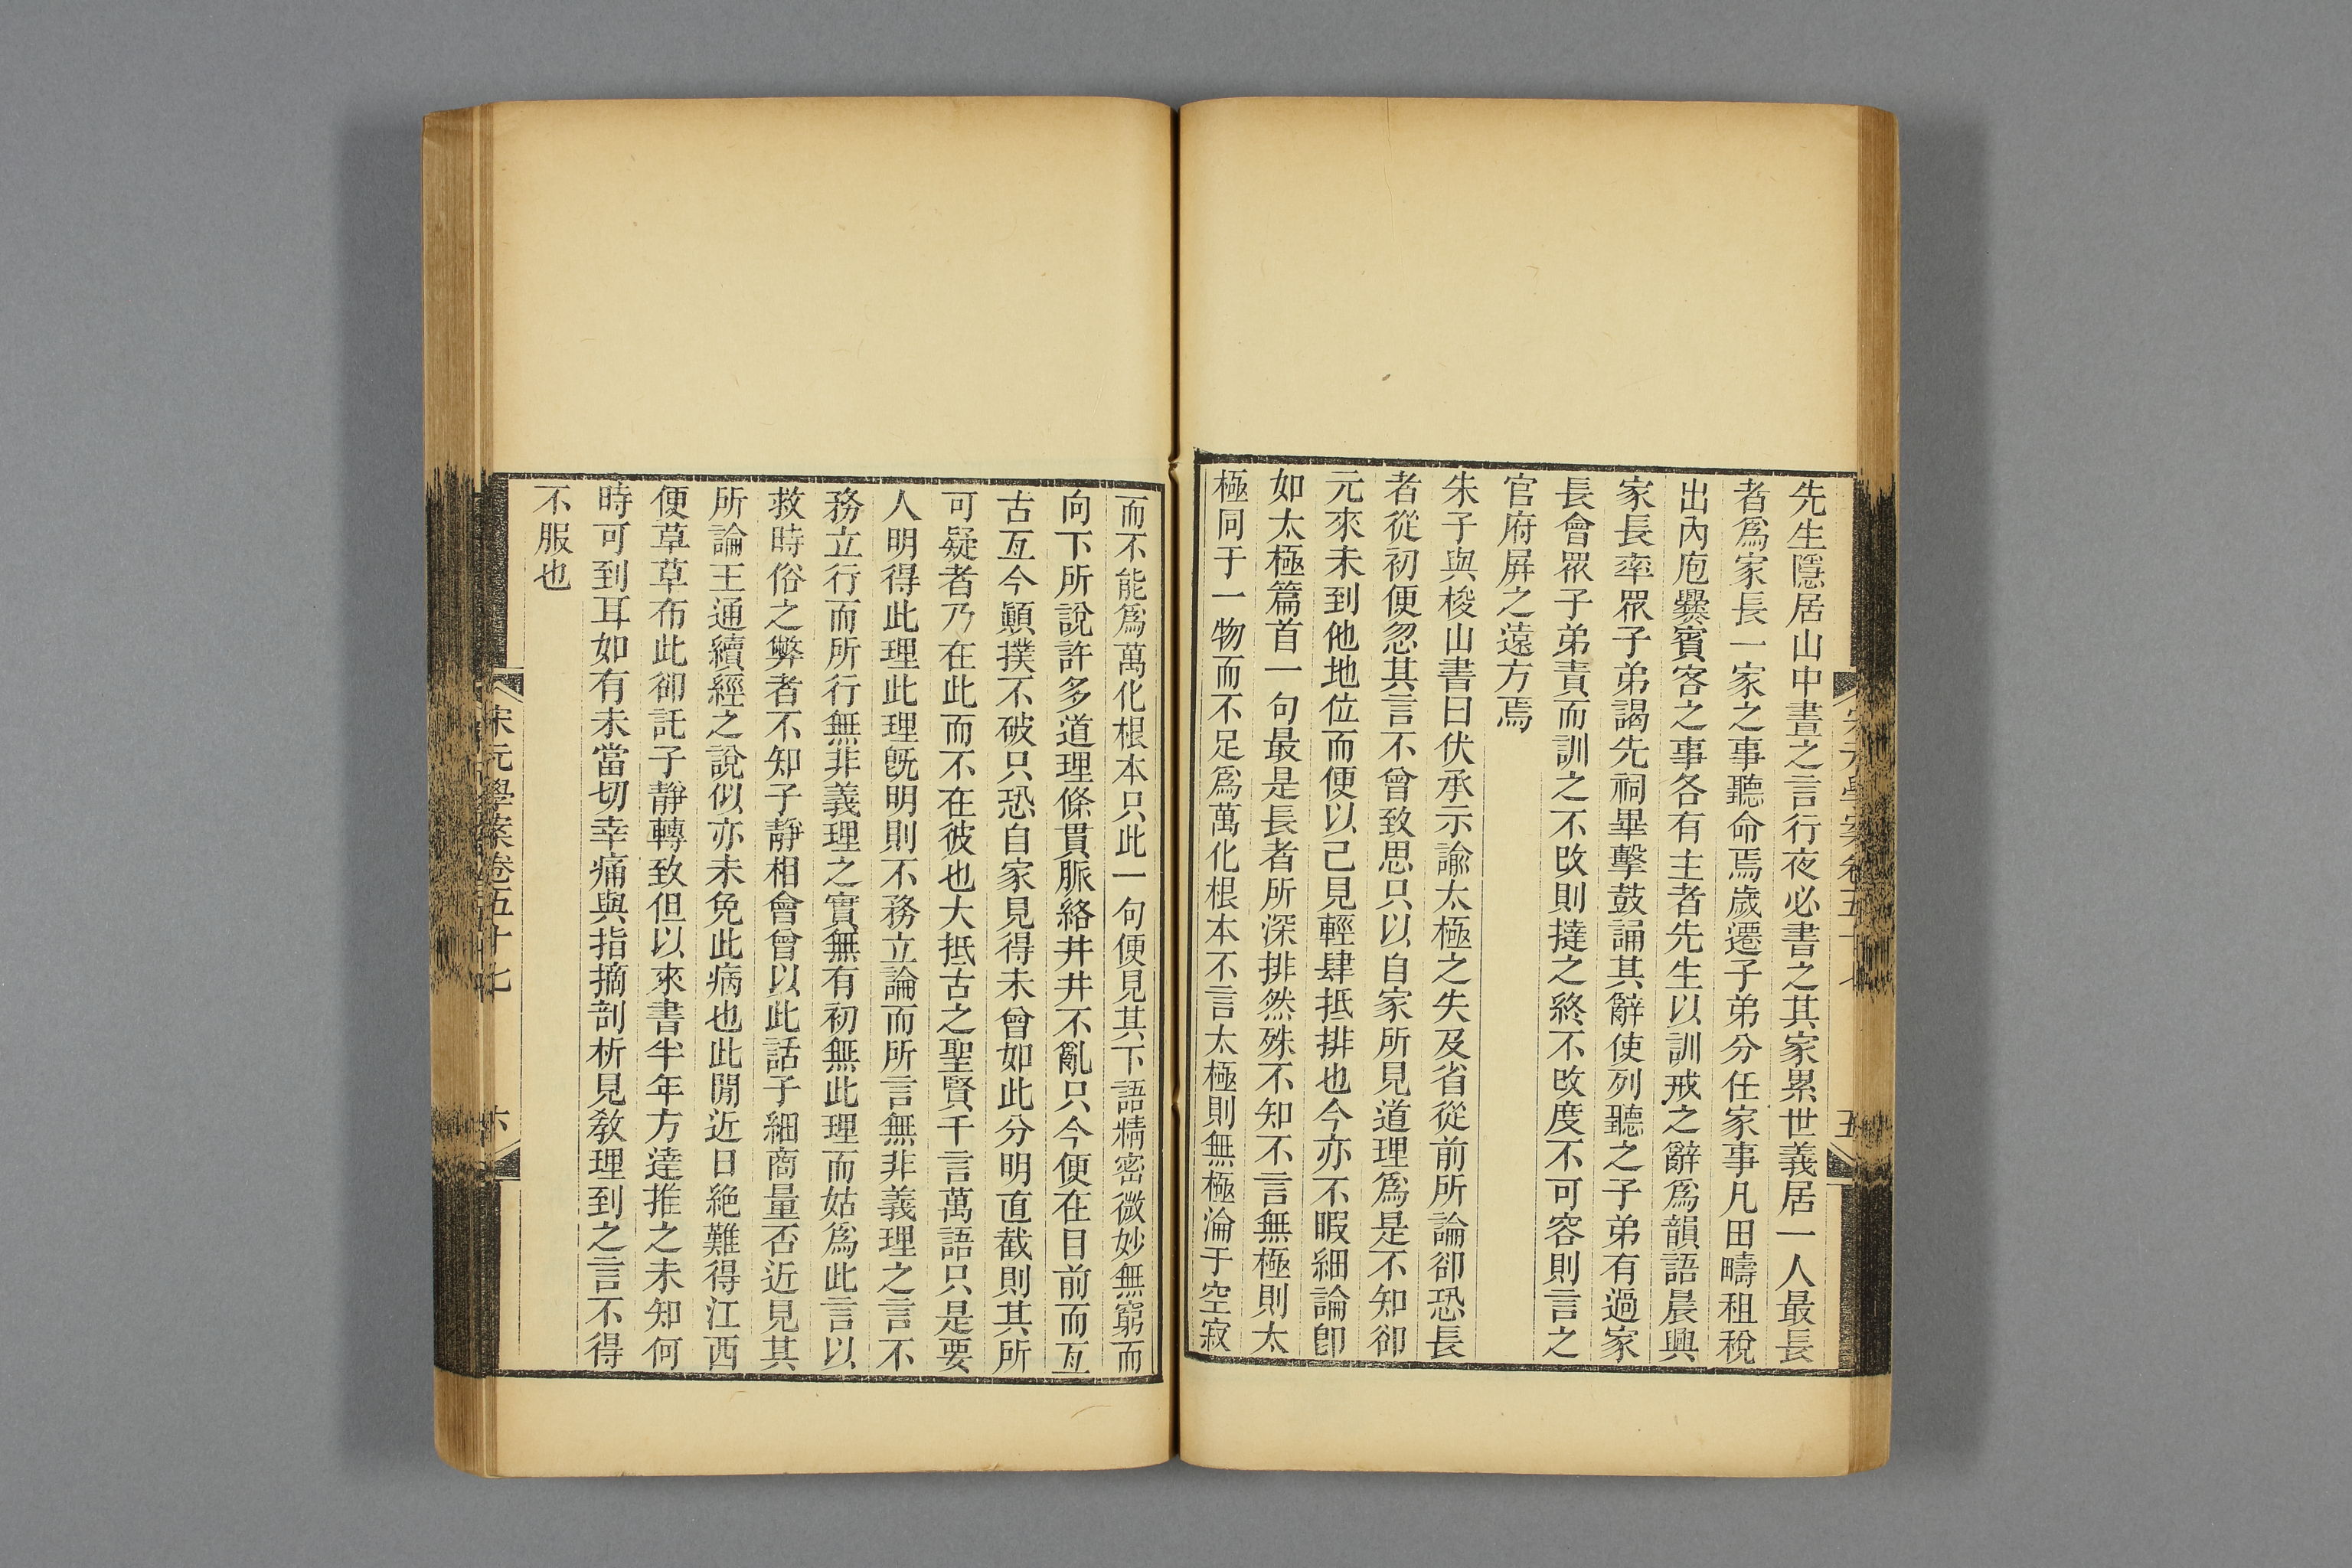 先生隱居山中晝之言行夜必書之其家累世義居一人最長
者爲家長一家之事聽命焉歲遷子弟分任家事凡田疇租稅
出內庖爨賓客之事各有主者先生以訓戒之辭爲韻語晨興
家長率眾子弟謁先祠畢擊鼓誦其辭使列聽之子弟有過家
長會眾子弟責而訓之不改則撻之終不改度不可容則言之
官府屛之遠方焉
朱子與梭山書曰伏承示諭太極之失及省從前所論卻恐長
者從初便忽其言不曾致思只以自家所見道理爲是不知卻
元來未到他地位而便以己見輕肆抵排也今亦不暇細論卽
如太極篇首一句最是長者所深排然殊不知不言無極則太
極同于一物而不足爲萬化根本不言太極則無極淪于空寂
宋元學案卷五十七
五
而不能爲萬化根本只此一句便見其下語精密微妙無窮而
向下所說許多道理條貫脈絡井井不亂只今便在目前而亙
古亙今顚撲不破只恐自家見得未曾如此分明直截則其所
可疑者乃在此而不在彼也大抵古之聖賢千言萬語只是要
人明得此理此理旣明則不務立論而所言無非義理之言不
務立行而所行無非義理之實無有初無此理而姑爲此言以
救時俗之弊者不知子靜相會曾以此話子細商量否近見其
所論王通續經之說似亦未免此病也此閒近日絕難得江西
便草草布此卻託子靜轉致但以來書半年方達推之未知何
時可到耳如有未當切幸痛與指摘剖析見敎理到之言不得
不服也
宋元學案卷五十七
六